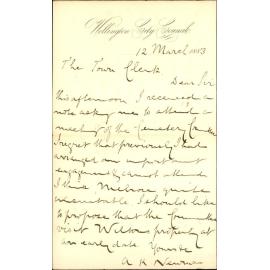 Wellington City Council
12 March 1883
The Town Clerk
Dear Sir
This afternoon I received a
note asking me to attend a
meeting of the Cemetery Comtee
I regret that previously I had
arranged an important
engagement & cannot attend
I think quite
I should like
to propose that the Committee
visit Wiltons property at
an early date Yours
A K Newman